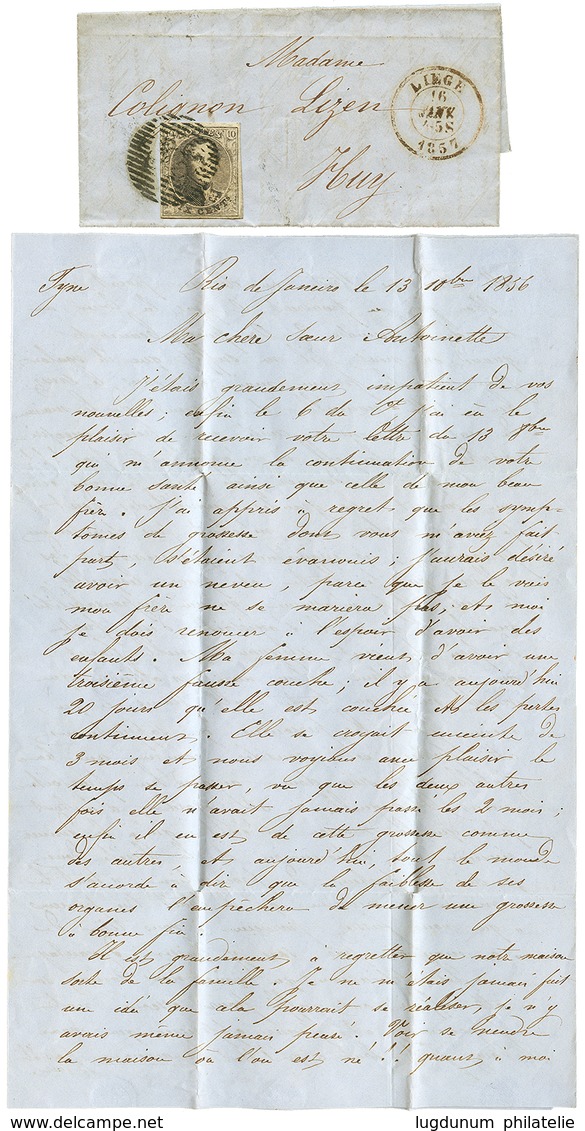 Madame
Colignon Lizen
Huy
LIEGE
16
JANV
1857
10
Tyne Rio de Janeiro le 13 10bre 1856
Ma chère sœur Antoinette
J'étais grandement impatient de vos
nouvelles; enfin le 6 du Ct j'ai eu le
plaisir de recevoir votre lettre du 13 8bre
qui m'annonce la continuation de votre
bonne santé ainsi que celle de mon beau
frère. J'ai appris à regret que les symp-
tomes de grossesse dont vous m'avez fait
part, s'étaient évanouis; j'aurais désiré
avoir un neveu, parce que je le vois
mon frère ne se mariera pas; et moi
je dois renoncer à l'espoir d'avoir des
enfants. Ma femme vient d'avoir une
troisième fausse couche; il y a aujourd'hui
20 jours qu'elle est couchée et les pertes
continuent. Elle se croyait enceinte de
3 mois et nous voyions avec plaisir le
temps se passer, vu que les deux autres
fois elle n'avait jamais passé les 2 mois;
enfin il en est de cette grossesse comme
des autres, et aujourd'hui, tout le monde
s'accorde à dire que la faiblesse de ses
organes l'empêchera de mener une grossesse
à bonne fin.
Il est grandement à regretter que notre maison
sorte de la famille. Je ne m'étais jamais fait
une idée que cela pourrait se réaliser, je n'y
avais même jamais pensé. Voir se vendre
la maison où l'on est né!! quant à moi
www.delcampe.net
lugdunum philatelie